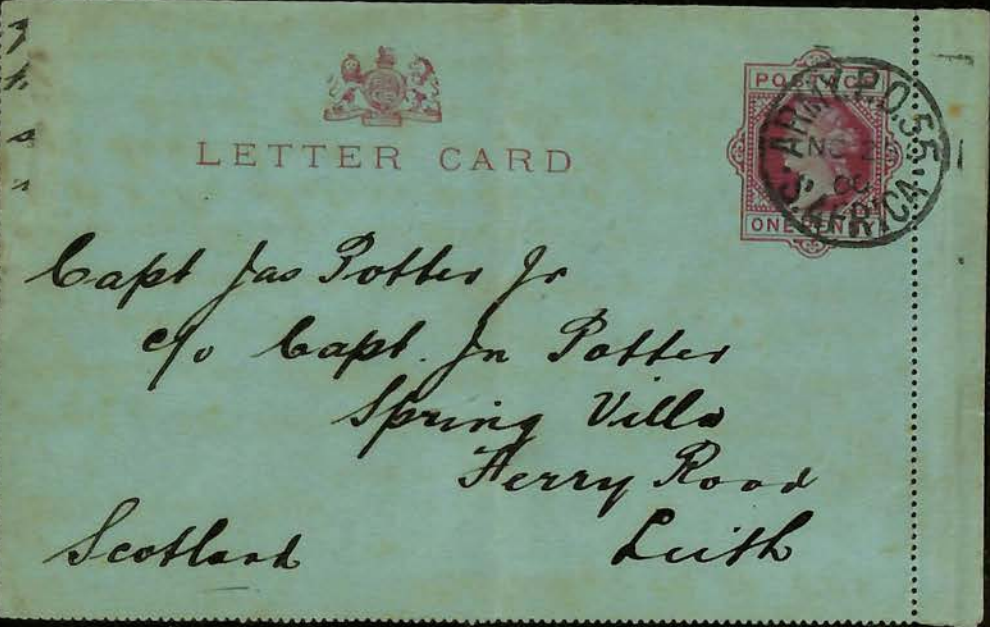 LETTER CARD
POSTAGE
ONE PENNY
ARMY.P.O.55
NO 2
00
S.AFRICA
Capt Jas Potter Jr
c/o Capt. Jn Potter
Spring Villa
Ferry Road
Leith
Scotland